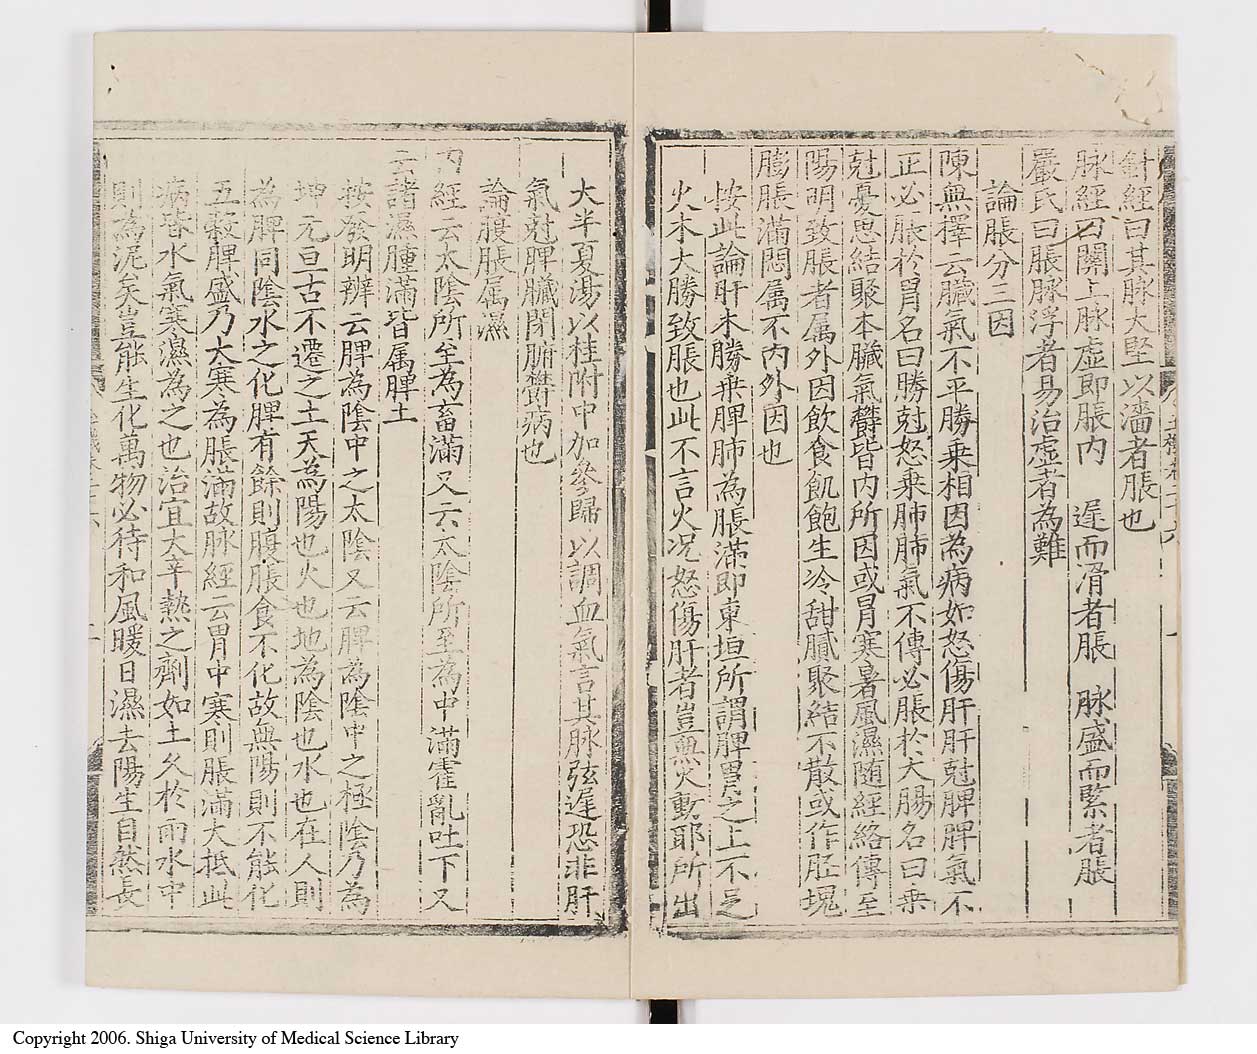 針經曰其脉大堅以濇者脹也
脉經曰關上脉虛即脹内　遲而滑者脹　脉盛而緊者脹
嚴氏曰脹脉浮者易治虛者為難
論脹分三因
陳無擇云臟氣不平勝乘相因為病如怒傷肝肝尅脾脾氣不
正必脹於胃名曰勝尅怒乘肺肺氣不傳必脹於大腸名曰乘
尅憂思結聚本臟氣鬱皆内所因或冐寒暑風濕随經絡傳至
陽明致脹者属外因飲食飢飽生冷甜膩聚結不散或作胵塊
膨脹滿悶属不内外因也
按此論肝木勝乗脾肺為脹滿即東垣所謂脾胃之上不足
火木大勝致脹也此不言火况怒傷肝者豈無火動耶所出
大半夏湯以桂附中加參歸以調血氣言其脉弦遲恐非肝
氣尅脾臟閉腑鬱病也
論腹脹属濕
内經云太陰所至為畜滿又云太陰所至為中滿霍亂吐下又
云諸濕腫滿皆属脾土
按發明辨云脾為陰中之太陰又云脾為陰中之極陰乃為
坤元亘古不遷之土天為陽也火也地為陰也水也在人則
為脾同陰水之化脾有餘則腹脹食不化故無陽則不能化
五穀脾盛乃大寒為脹滿故脉經云胃中寒則脹滿大抵此
病皆水氣寒濕為之也治宜大辛熱之劑如土久於雨水中
則為泥矣豈能生化萬物必待和風暖日濕去陽生自然長